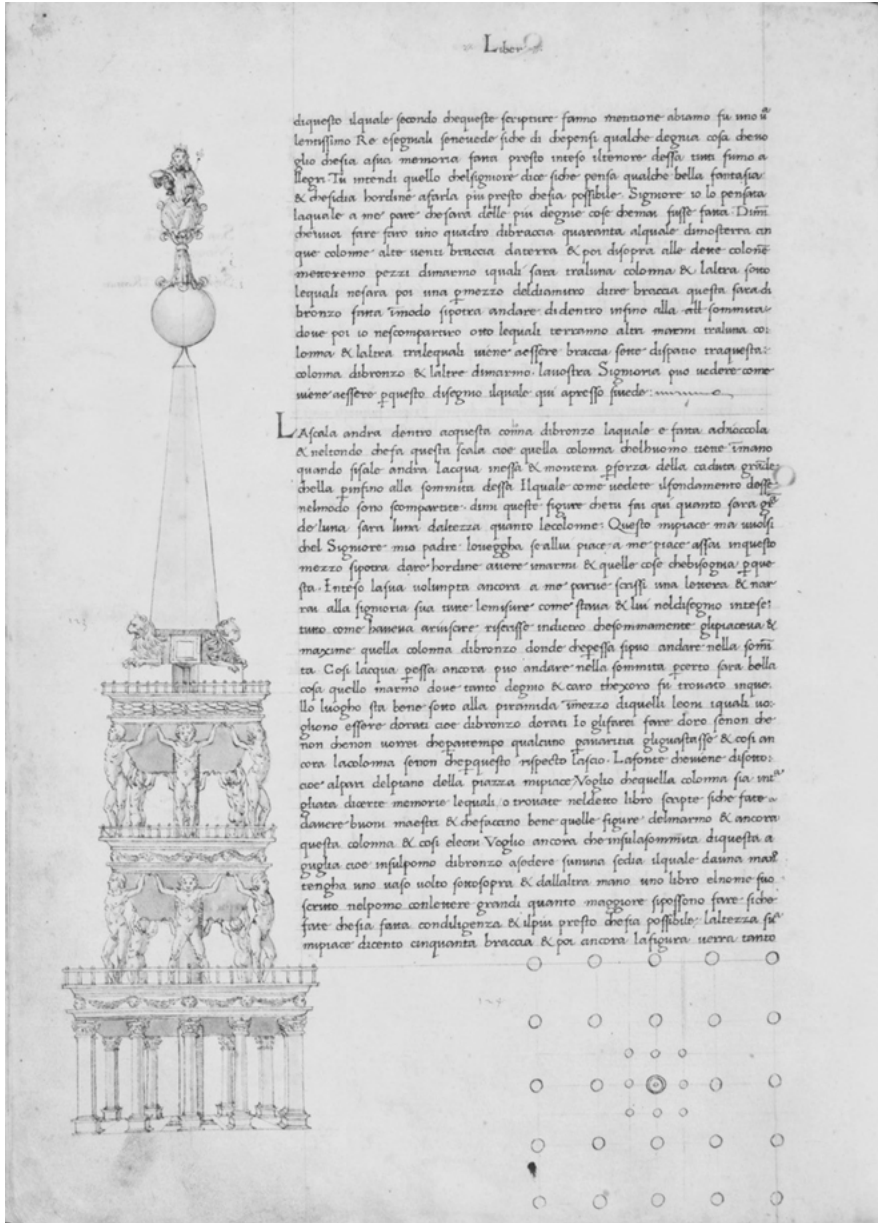 Liber
diquesto ilquale secondo chequeste scripture fanno mentione abiamo fu uno
lentissimo Re esegniali seneuede siche di chepensi qualche degnia cosa cheuo
glio chesia asua memoria fatta presto inteso iltenore dessa tutti fumo a
llegri Tu intendi quello chelsigniore dice siche pensa qualche bella fantasia
& chesidia hordine afarla piu presto chesia possibile. Signiore io lo pensata
laquale a me pare chesarà delle piu degnie cose chemai fusse fatta Dimi
cheuuoi fare faro uno quadro dibraccia quaranta alquale dimosterra cin
que colonne alte uenti braccia daterra & poi disopra alle dette colone
metteremo pezzi dimarmo iquali sara traluna colonna & laltra sotto
lequali nesara poi una pmezzo deldiamitro ditre braccia questa sara di
bronzo fatta imodo sipotra andare didentro infino alla sommita
doue poi io nescompartiro otto lequali terranno altri marmi traluna co
lonna & laltra tralequali uiene aessere braccia sette dispatio traquesta
colonna dibronzo & laltre dimarmo. lauostra Signioria puo uedere come
uiene aessere pquesto disegnio ilquale qui apresso siuede
LAscala andra dentro acquesta dibronzo laquale e fatta achioccola
& neltondo chefa questa scala cioe quella colonna chelhuomo tiene imano
quando sisale andra lacqua inessa & montera pforza della caduta grade
chella pinfino alla sommita dessa Ilquale come uedete ilfondamento desse
nelmodo sono scompartite. dimi queste figure chetu fai qui quanto sara
de luna sara luna daltezza quanto lecolonne. Questo mipiace ma uuolsi
chel Signiore mio padre loueggha seallui piace a me piace assai inquesto
mezzo sipotra dare hordine auere imarmi & quelle cose chebisognia pque
sta. Inteso lasua uolunpta ancora a me parue scrissi una lettera & nar
rai alla signioria sua tutte lemisure come staua & lui neldisegnio intese
tutto come haueua ariuscire riscrisse indietro chesommamente glipiaceua &
maxime quella colonna dibronzo donde chepessa sipuo andare nella somi
ta Cosi lacqua pessa ancora puo andare nella sommita pcerto sara bella
cosa quello marmo doue tanto degnio & caro thexoro fu trouato inque
llo luogho sta bene sotto alla piramida imezzo diquelli leoni iquali uo
gliono essere dorati cioe dibronzo dorati Io glifarei fare doro senon che
non chenon uorrei chepantempo qualcuno pauaritia gliguastasse & cosi an
cora lacolonna senon chepquesto rispecto lascio. Lafonte cheuiene disotto
cioe alpari delpiano della piazza mipiace Voglio chequella colonna sia
gliata dicerte memorie lequali o trouate neldetto libro scripte siche fate
dauere buoni maestri & chefaccino bene quelle figure delmarmo & ancora
questa colonna & cosi eleoni Voglio ancora che insulasommita diquesta a
guglia cioe insulpomo dibronzo asedere sununa sedia ilquale dauna man
tengha uno uaso uolto sottosopra & dallaltra mano uno libro elnome suo
scritto nelpomo conlettere grandi quanto maggiore sipossono fare siche
fate chesia fatta condiligenza & ilpiu presto chesia possibile. laltezza
mipiace dicento cinquanta braccia & poi ancora lafigura uerra tanto